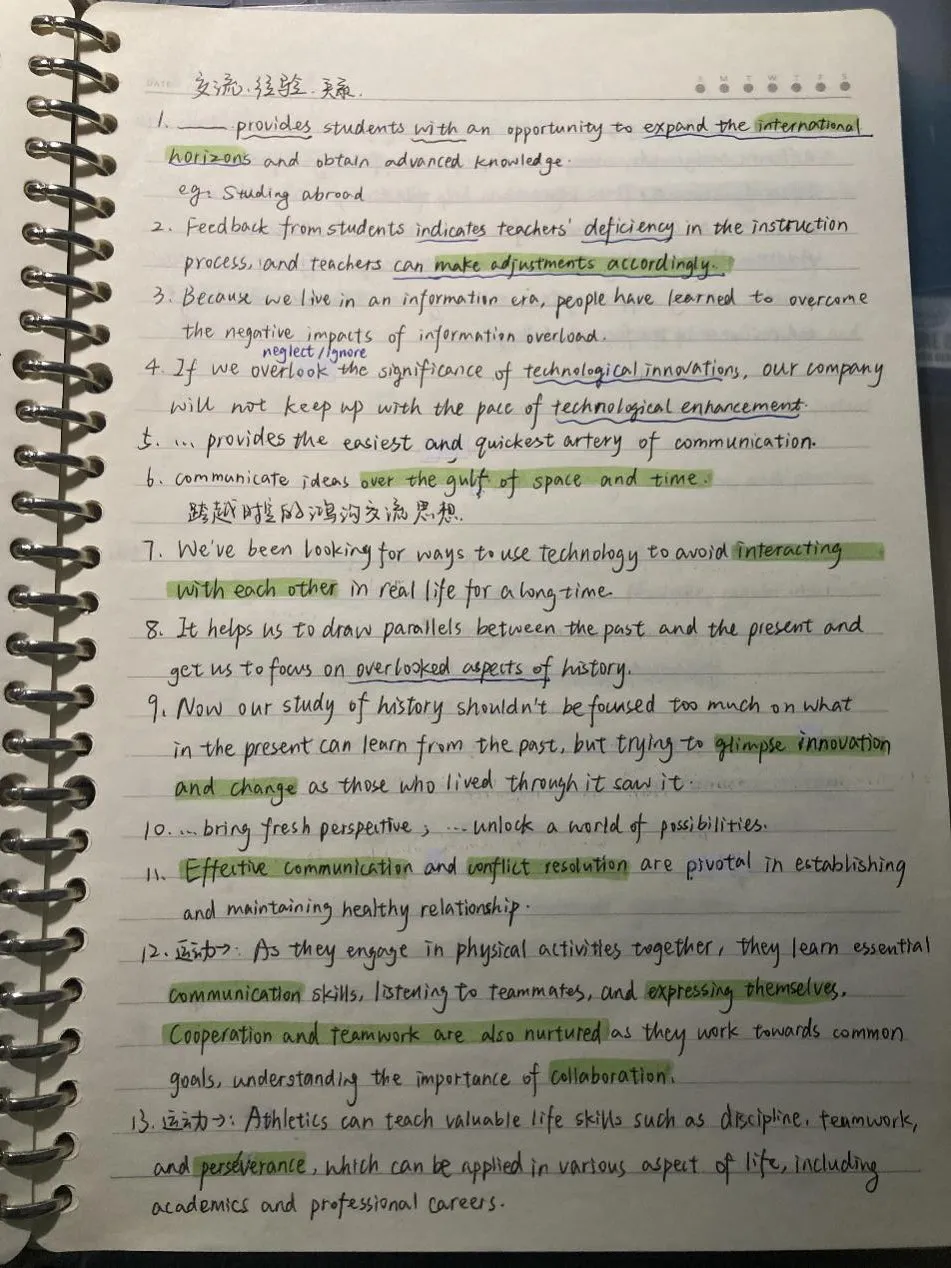 DATE 交流·经验·关系.
S M T W T F S
1. ____ provides students with an opportunity to expand the international
horizons and obtain advanced knowledge.
eg: Studing abroad
2. Feedback from students indicates teachers' deficiency in the instruction
process, and teachers can make adjustments accordingly.
3. Because we live in an information era, people have learned to overcome
the negative impacts of information overload.
neglect/ignore
4. If we overlook the significance of technological innovations, our company
will not keep up with the pace of technological enhancement.
5. ... provides the easiest and quickest artery of communication.
6. communicate ideas over the gulf of space and time.
跨越时空的鸿沟交流思想.
7. We've been looking for ways to use technology to avoid interacting
with each other in real life for a long time.
8. It helps us to draw parallels between the past and the present and
get us to focus on overlooked aspects of history.
9. Now our study of history shouldn't be foused too much on what
in the present can learn from the past, but trying to glimpse innovation
and change as those who lived through it saw it.
10. ... bring fresh perspective; ... unlock a world of possibilities.
11. Effective communication and conflict resolution are pivotal in establishing
and maintaining healthy relationship.
12. 运动→: As they engage in physical activities together, they learn essential
communication skills, listening to teammates, and expressing themselves.
Cooperation and teamwork are also nurtured as they work towards common
goals, understanding the importance of collaboration.
13. 运动→: Athletics can teach valuable life skills such as discipline, teamwork,
and perseverance, which can be applied in various aspect of life, including
academics and professional careers.